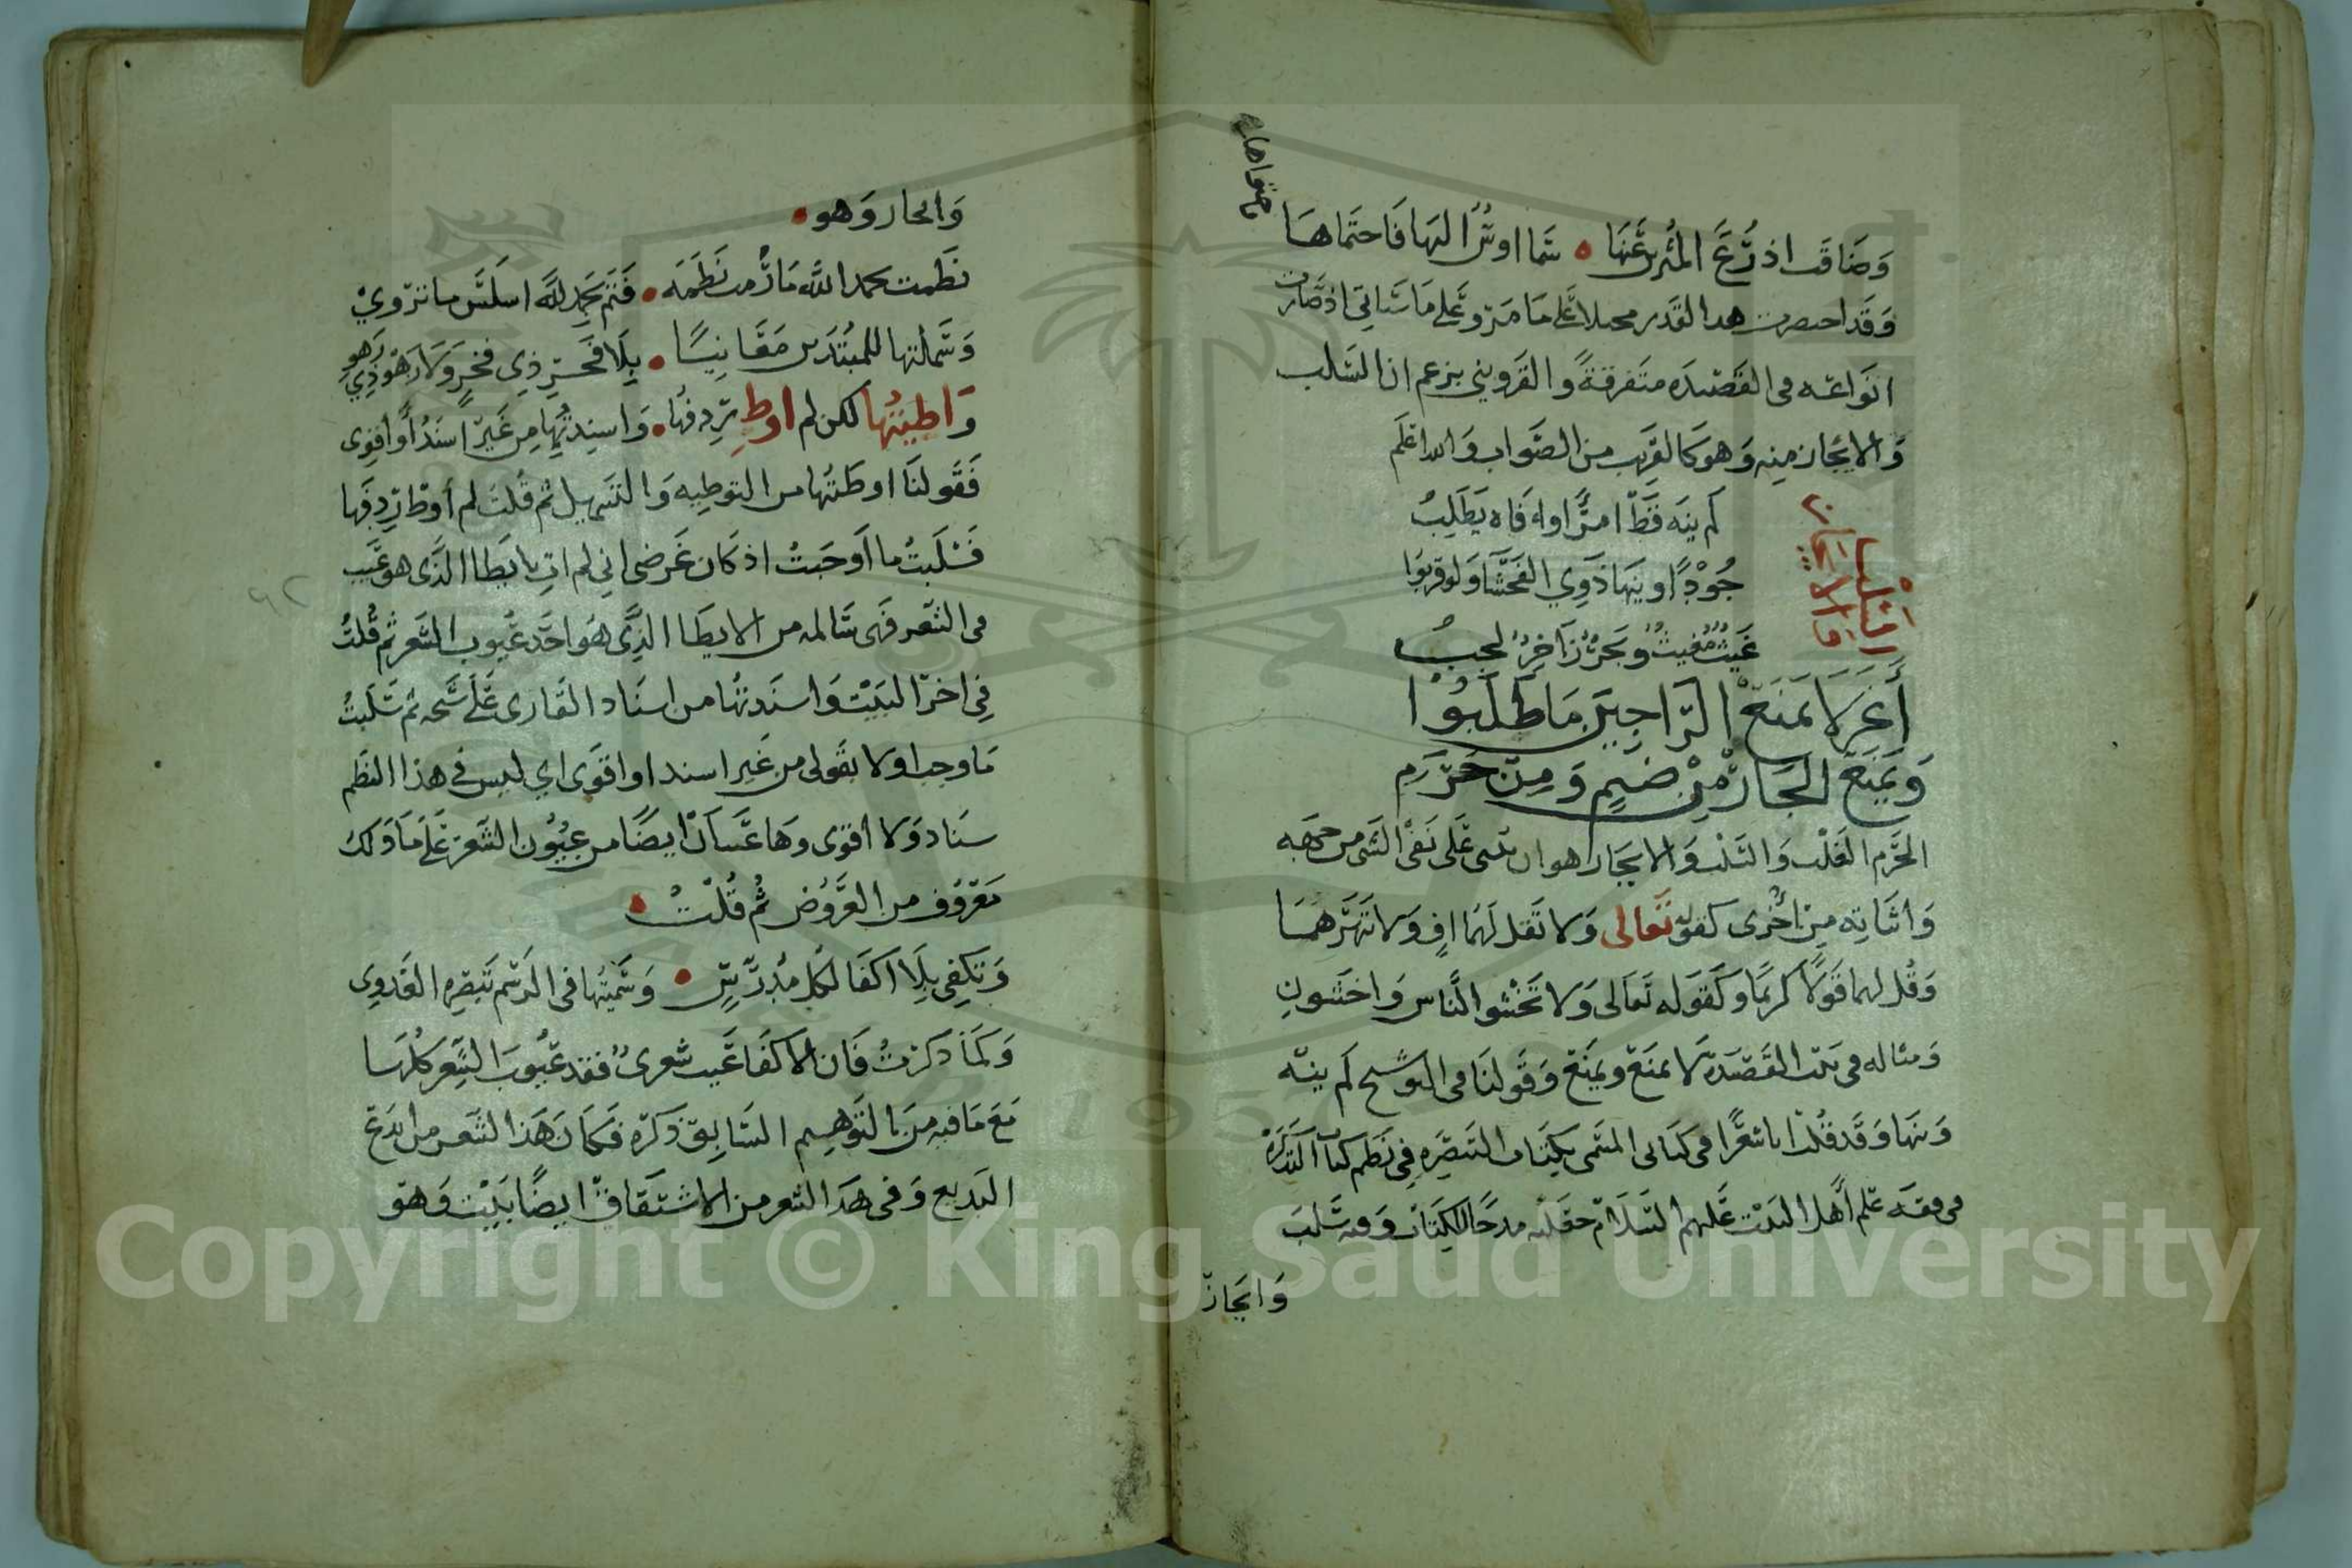 وَضَاقَت اذرُعَ المُثرين عَنهَا • سَما اوسُ اليهَا فَاحتَماهَا
وَقَد احتصرت هدا القَدر محيلا عَلى مَا مَر وَعَلى مَا سَياتى اذ صَارت
انوَاعه فى القَصيدَه متفرقةً والقزوينى يزعم ان السَلب
وَالايجَاز منه وَهو كَالقريب من الصَواب وَالله اعلم
لَم ينهَ قَط امرًا وافَاه يَطلِبُ
جُودًا وينهَا ذَوِي الفَحشَا وَلو قربُوا
غَيثٌ مُغِيثٌ وَبَحرٌ زَاخِرٌ لجبُ
أَغَر لَا يَمنَعُ الرَّاجِينَ مَا طَلَبُوا
وَيَمنَعُ الجَارَ مِنْ ضَيمٍ وَمِن حَرَمِ
السَّلْب
وَالايجَاز
الحَرَم الغَلب وَالسَلب وَالايجَاز هو ان تبنى عَلى نَفى الشى من جهه
وَاثبَاته مِن اخرى كقوله تَعالى وَلا تَقل لَهمَا افٍ وَلا تَنهَرهمَا
وَقُل لهما قَولًا كَريمًا وَكَقوَله تَعَالى وَلا تَخشَوا النَّاس وَاخشَونِ
وَمثاله فى بيت القَصيَدة لَا يمنَع وَيمنَع وَقَولنَا فى التوشيح لَم ينه
وَينهَا وَقَد قُلت اناشعرًا فى كتَابى المسَمى بكتَاب التبصِرَهِ فِي نَظم كتاب التَذكرَة
فى فقه علم أهل البَيت عَليهم السَلَام جعَلته مدحًا للكِتَاب وَفيه سَلب
وَايجَاز
وَايجَاز وَهو •
نَظمت بحمد اللَّه مَا رُمت نَظمَه • فَتَم بحَمدِ للَّه اسلَس مَا يروِيْ
وَسَهلتها للمبتَدين مقَانِيسًا • بِلَا فَخر ذِي فخرٍ وَلَا زَهْوَ ذِي زَهوِ
وَاطيتُها لكن لم اوطِ رِدفُها • وَاسندتُها مِن غَير اسنَدُ أَو اقوِى
فَقولنَا اوطَتُها من التوطِيه وَالتسَهيل ثُم قُلتُ لم أوطْ رِدِفَها
فَسْلَبتُ ما اَوجَبتُ اذ كَان غَرضى انِى لم اتِ بايطَا الذَى هو عَيب
فى الشعر فَهى سَالمه من الايطَا الذِى هَو احَد عُيوب الشعر ثم قُلتُ
فِى اخر البَيْت وَاسنَدتُها من اسنَاد القَارى عَلَى شَيخه ثم سَلَبتُ
مَا وجب اولا بقَولى من غَير اسند او اقوَى اي ليس في هذا النظم
سنَاد وَلا اقوَى وهَا عَيبَان ايضًا من عُيُون الشعَر عَلَى مَا ذَلك
مَعروُف من العَرُوض ثُم قُلْتُ •
وَتكفِى بِلَا اكفَا لكُل مُدرسٍ • وَسَمَيتُها فى الرَسم تَبصِره الغَدوِى
وَكَمَا ذكَرتُ فَان الاكفَا عَيب شعرىٌ فقد عيُوبَ الشِعر كُلهَا
مَع مَا فيه مِن التَوهيم السَابق ذَكَره فَكَان هَذا الشعر من ابَدع
البَديع وَفى هَذا الشعر من الاشتقَاقِ ايضًا بَيْت وَهوَ
٩٢
Copyright © King Saud University
1957